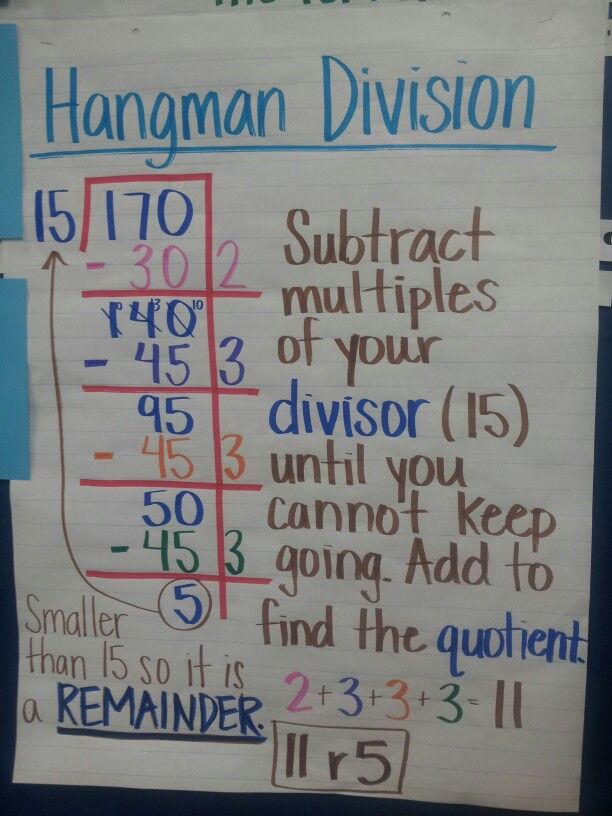 Hangman Division
15 170
- 30 2
140
- 45 3
95
- 45 3
50
- 45 3
5
Subtract
multiples
of your
divisor (15)
until you
cannot keep
going. Add to
find the quotient.
2+3+3+3=11
11 r 5
Smaller
than 15 so it is
a REMAINDER.